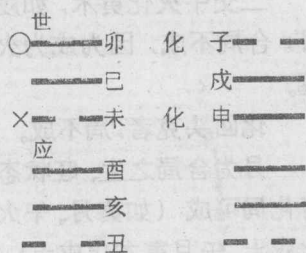 世
○ 卯 化 子
巳 戌
× 未 化 申
应
酉
亥
丑